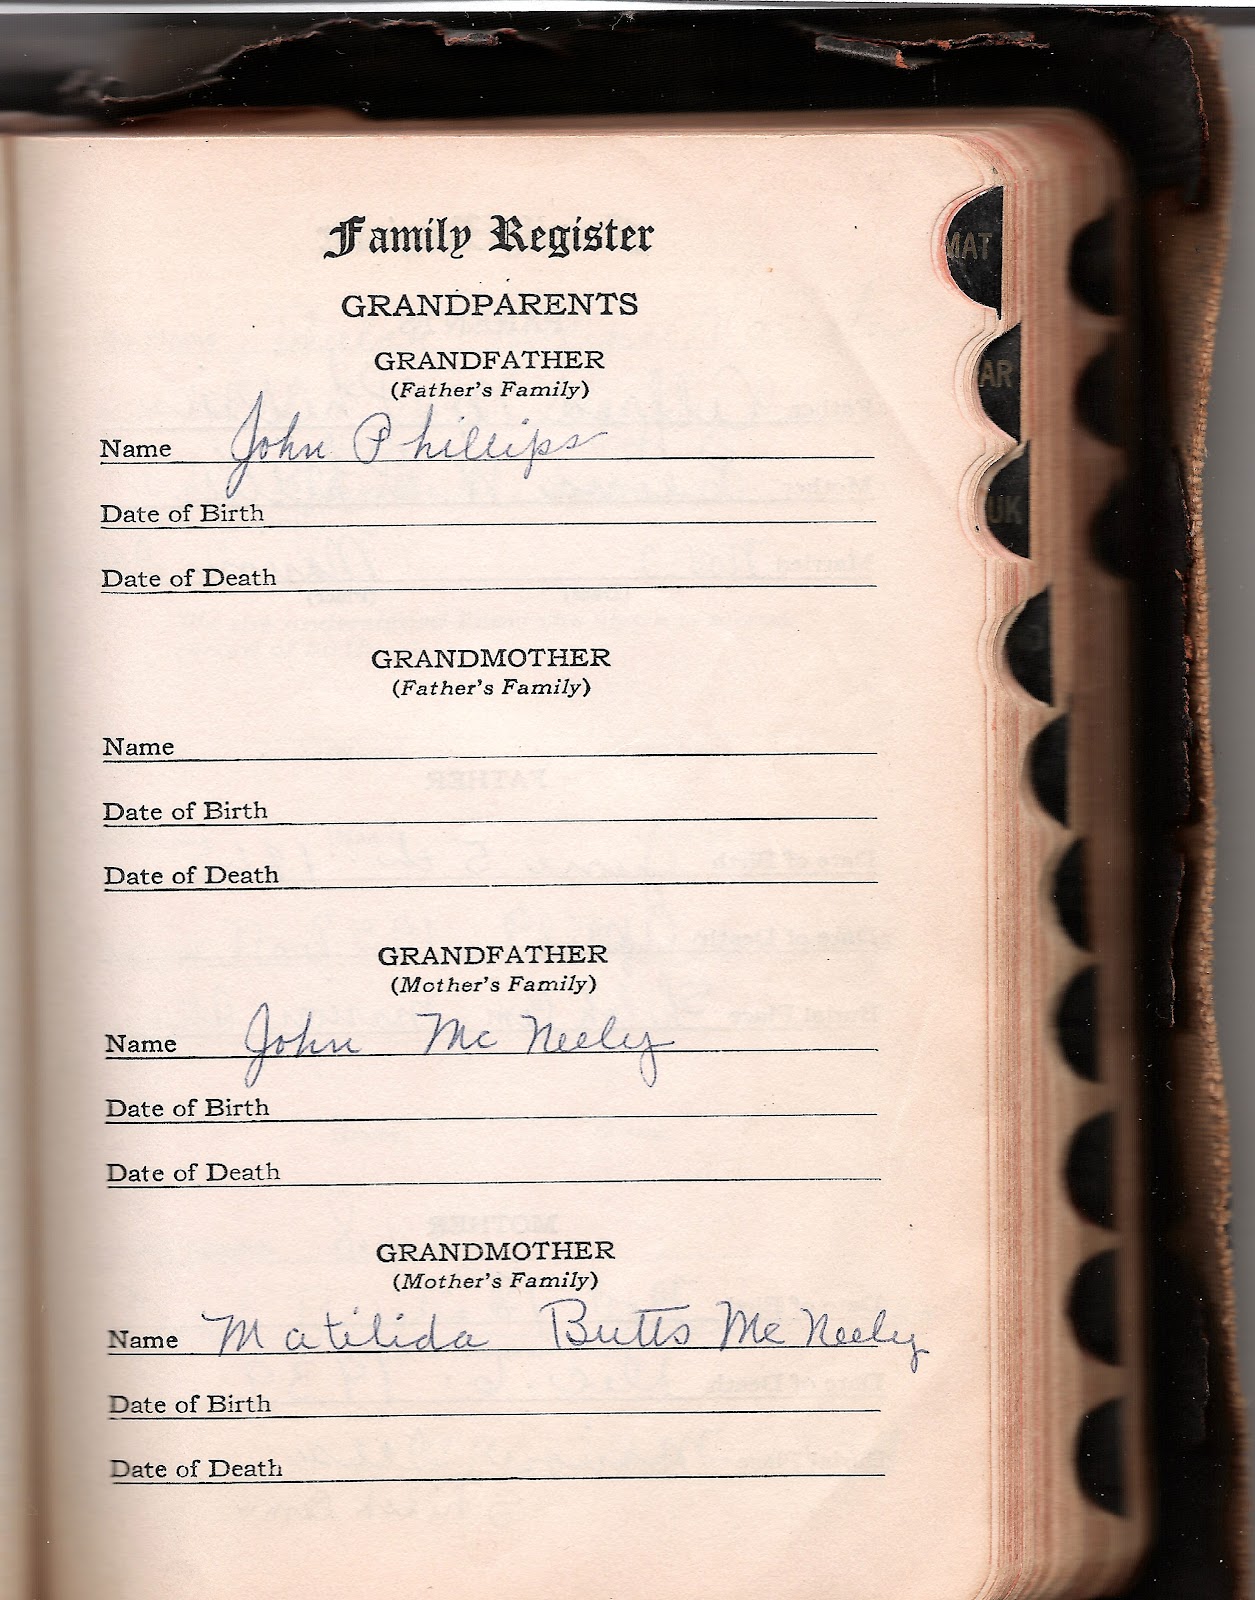 Family Register
GRANDPARENTS
GRANDFATHER
(Father's Family)
Name John Phillips
Date of Birth
Date of Death
GRANDMOTHER
(Father's Family)
Name
Date of Birth
Date of Death
GRANDFATHER
(Mother's Family)
Name John Mc Neely
Date of Birth
Date of Death
GRANDMOTHER
(Mother's Family)
Name Matilida Butts Mc Neely
Date of Birth
Date of Death
MAT
AR
UK